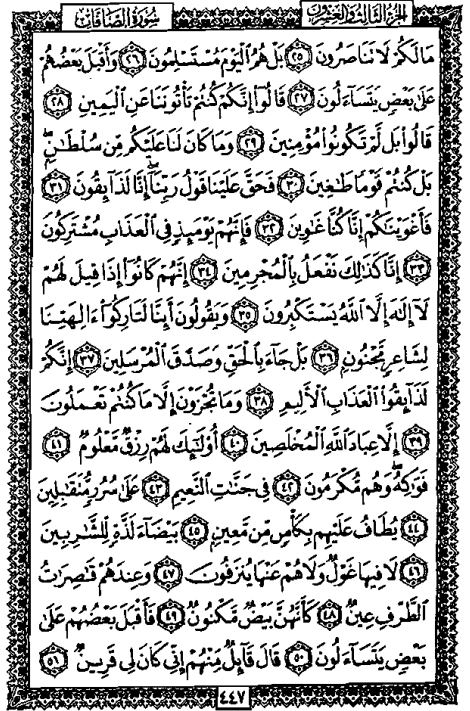 الجزء الثالث والعشرون
سورة الصافات
مَا لَكُمْ لَا تَنَاصَرُونَ ٢٥ بَلْ هُمُ الْيَوْمَ مُسْتَسْلِمُونَ ٢٦ وَأَقْبَلَ بَعْضُهُمْ
عَلَىٰ بَعْضٍ يَتَسَاءَلُونَ ٢٧ قَالُوا إِنَّكُمْ كُنتُمْ تَأْتُونَنَا عَنِ الْيَمِينِ ٢٨
قَالُوا بَل لَّمْ تَكُونُوا مُؤْمِنِينَ ٢٩ وَمَا كَانَ لَنَا عَلَيْكُم مِّن سُلْطَانٍ ۖ
بَلْ كُنتُمْ قَوْمًا طَاغِينَ ٣٠ فَحَقَّ عَلَيْنَا قَوْلُ رَبِّنَا ۖ إِنَّا لَذَائِقُونَ ٣١
فَأَغْوَيْنَاكُمْ إِنَّا كُنَّا غَاوِينَ ٣٢ فَإِنَّهُمْ يَوْمَئِذٍ فِي الْعَذَابِ مُشْتَرِكُونَ
٣٣ إِنَّا كَذَٰلِكَ نَفْعَلُ بِالْمُجْرِمِينَ ٣٤ إِنَّهُمْ كَانُوا إِذَا قِيلَ لَهُمْ
لَا إِلَٰهَ إِلَّا اللَّهُ يَسْتَكْبِرُونَ ٣٥ وَيَقُولُونَ أَئِنَّا لَتَارِكُوا آلِهَتِنَا
لِشَاعِرٍ مَّجْنُونٍ ٣٦ بَلْ جَاءَ بِالْحَقِّ وَصَدَّقَ الْمُرْسَلِينَ ٣٧ إِنَّكُمْ
لَذَائِقُو الْعَذَابِ الْأَلِيمِ ٣٨ وَمَا تُجْزَوْنَ إِلَّا مَا كُنتُمْ تَعْمَلُونَ
٣٩ إِلَّا عِبَادَ اللَّهِ الْمُخْلَصِينَ ٤٠ أُولَٰئِكَ لَهُمْ رِزْقٌ مَّعْلُومٌ ٤١
فَوَاكِهُ ۖ وَهُم مُّكْرَمُونَ ٤٢ فِي جَنَّاتِ النَّعِيمِ ٤٣ عَلَىٰ سُرُرٍ مُّتَقَابِلِينَ
٤٤ يُطَافُ عَلَيْهِم بِكَأْسٍ مِّن مَّعِينٍ ٤٥ بَيْضَاءَ لَذَّةٍ لِّلشَّارِبِينَ
٤٦ لَا فِيهَا غَوْلٌ وَلَا هُمْ عَنْهَا يُنزَفُونَ ٤٧ وَعِندَهُمْ قَاصِرَاتُ
الطَّرْفِ عِينٌ ٤٨ كَأَنَّهُنَّ بَيْضٌ مَّكْنُونٌ ٤٩ فَأَقْبَلَ بَعْضُهُمْ عَلَىٰ
بَعْضٍ يَتَسَاءَلُونَ ٥٠ قَالَ قَائِلٌ مِّنْهُمْ إِنِّي كَانَ لِي قَرِينٌ ٥١
٤٤٧